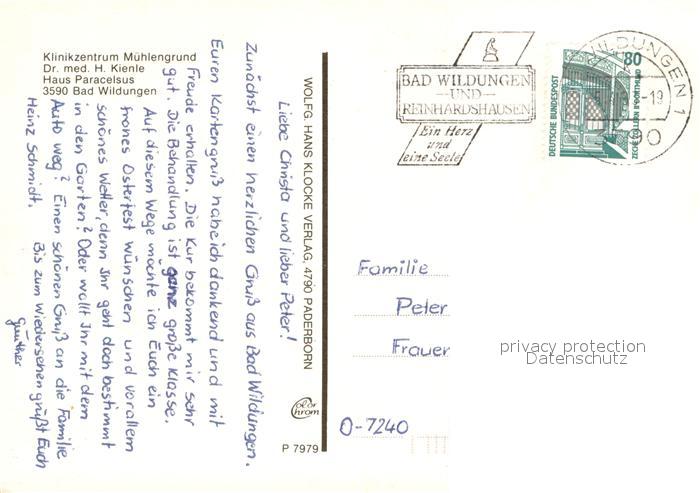 Klinikzentrum Mühlengrund
Dr. med. H. Kienle
Haus Paracelsus
3590 Bad Wildungen
Liebe Christa und lieber Peter!
Zunächst einen herzlichen Gruß aus Bad Wildungen.
Euren Kartengruß habe ich dankend und mit
Freude erhalten. Die Kur bekommt mir sehr
gut. Die Behandlung ist ganz große Klasse.
Auf diesem Wege möchte ich Euch ein
frohes Osterfest wünschen und vor allem
schönes Wetter, denn Ihr geht doch bestimmt
in den Garten? Oder wollt Ihr mit dem
Auto weg? Einen schönen Gruß an die Familie
Heinz Schmidt. Bis zum Wiedersehen grüßt Euch
Günther
WOLFG. HANS KLOCKE VERLAG, 4790 PADERBORN
Color
Chrom
P 7979
BAD WILDUNGEN
-UND-
REINHARDSHAUSEN
Ein Herz
und
eine Seele
WILDUNGEN 1
-19
DEUTSCHE BUNDESPOST
80
ZECHE ZOLLERN II DORTMUND
Familie
Peter
Frauer
O-7240
privacy protection
Datenschutz